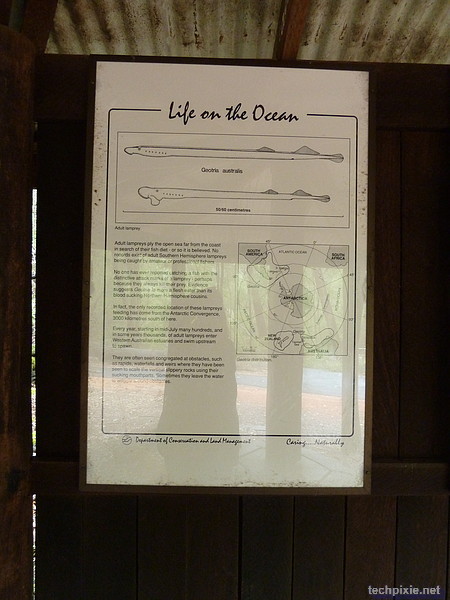 Life on the Ocean
Geotria australis
50/60 centimetres
Adult lamprey
Adult lampreys ply the open sea far from the coast
in search of their fish diet - or so it is believed. No
records exist of adult Southern Hemisphere lampreys
being caught by amateur or professional fishers.
No one has ever reported catching a fish with the
distinctive attack marks of a lamprey - perhaps
because they always kill their prey. Evidence
suggests Geotria is more a flesh eater than its
blood sucking Northern Hemisphere cousins.
In fact, the only recorded location of these lampreys
feeding has come from the Antarctic Convergence,
3000 kilometres south of here.
Every year, starting in mid-July many hundreds, and
in some years thousands, of adult lampreys enter
Western Australian estuaries and swim upstream
to spawn.
They are often seen congregated at obstacles, such
as rapids, waterfalls and weirs where they have been
seen to scale the vertical slippery rocks using their
sucking mouthparts. Sometimes they leave the water
SOUTH
AMERICA
ATLANTIC OCEAN
SOUTH
AFRICA
ANTARCTICA
NEW
ZEALAND
AUSTRALIA
Geotria distribution
Department of Conservation and Land Management
Caring....Naturally
techpixie.net